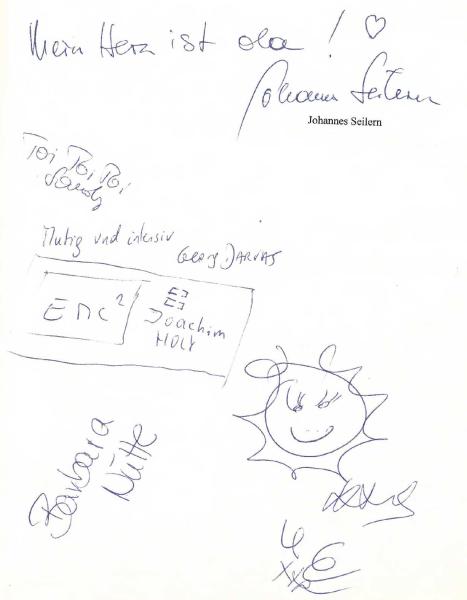 Mein Herz ist da ! ♡
Johannes Seilern
Johannes Seilern
Toi, Toi, Toi,
Mutig und intensiv
Georg DARVAS
EMC²
Joachim
Barbara
Nütte